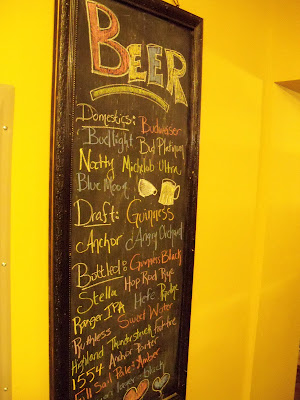 BEER
Domestics: Budweiser
Budlight Bud Platinum
Natty Michelob Ultra
Blue Moon
Draft: Guinness
Anchor Angry Orchard
Bottled: Guinness Black
Stella Hop Rod Rye
Ranger IPA Hefe
Ruthless Sweet Water
Highland Thunderstruck
1554 Anchor Porter
Full Sail Pale & Amber